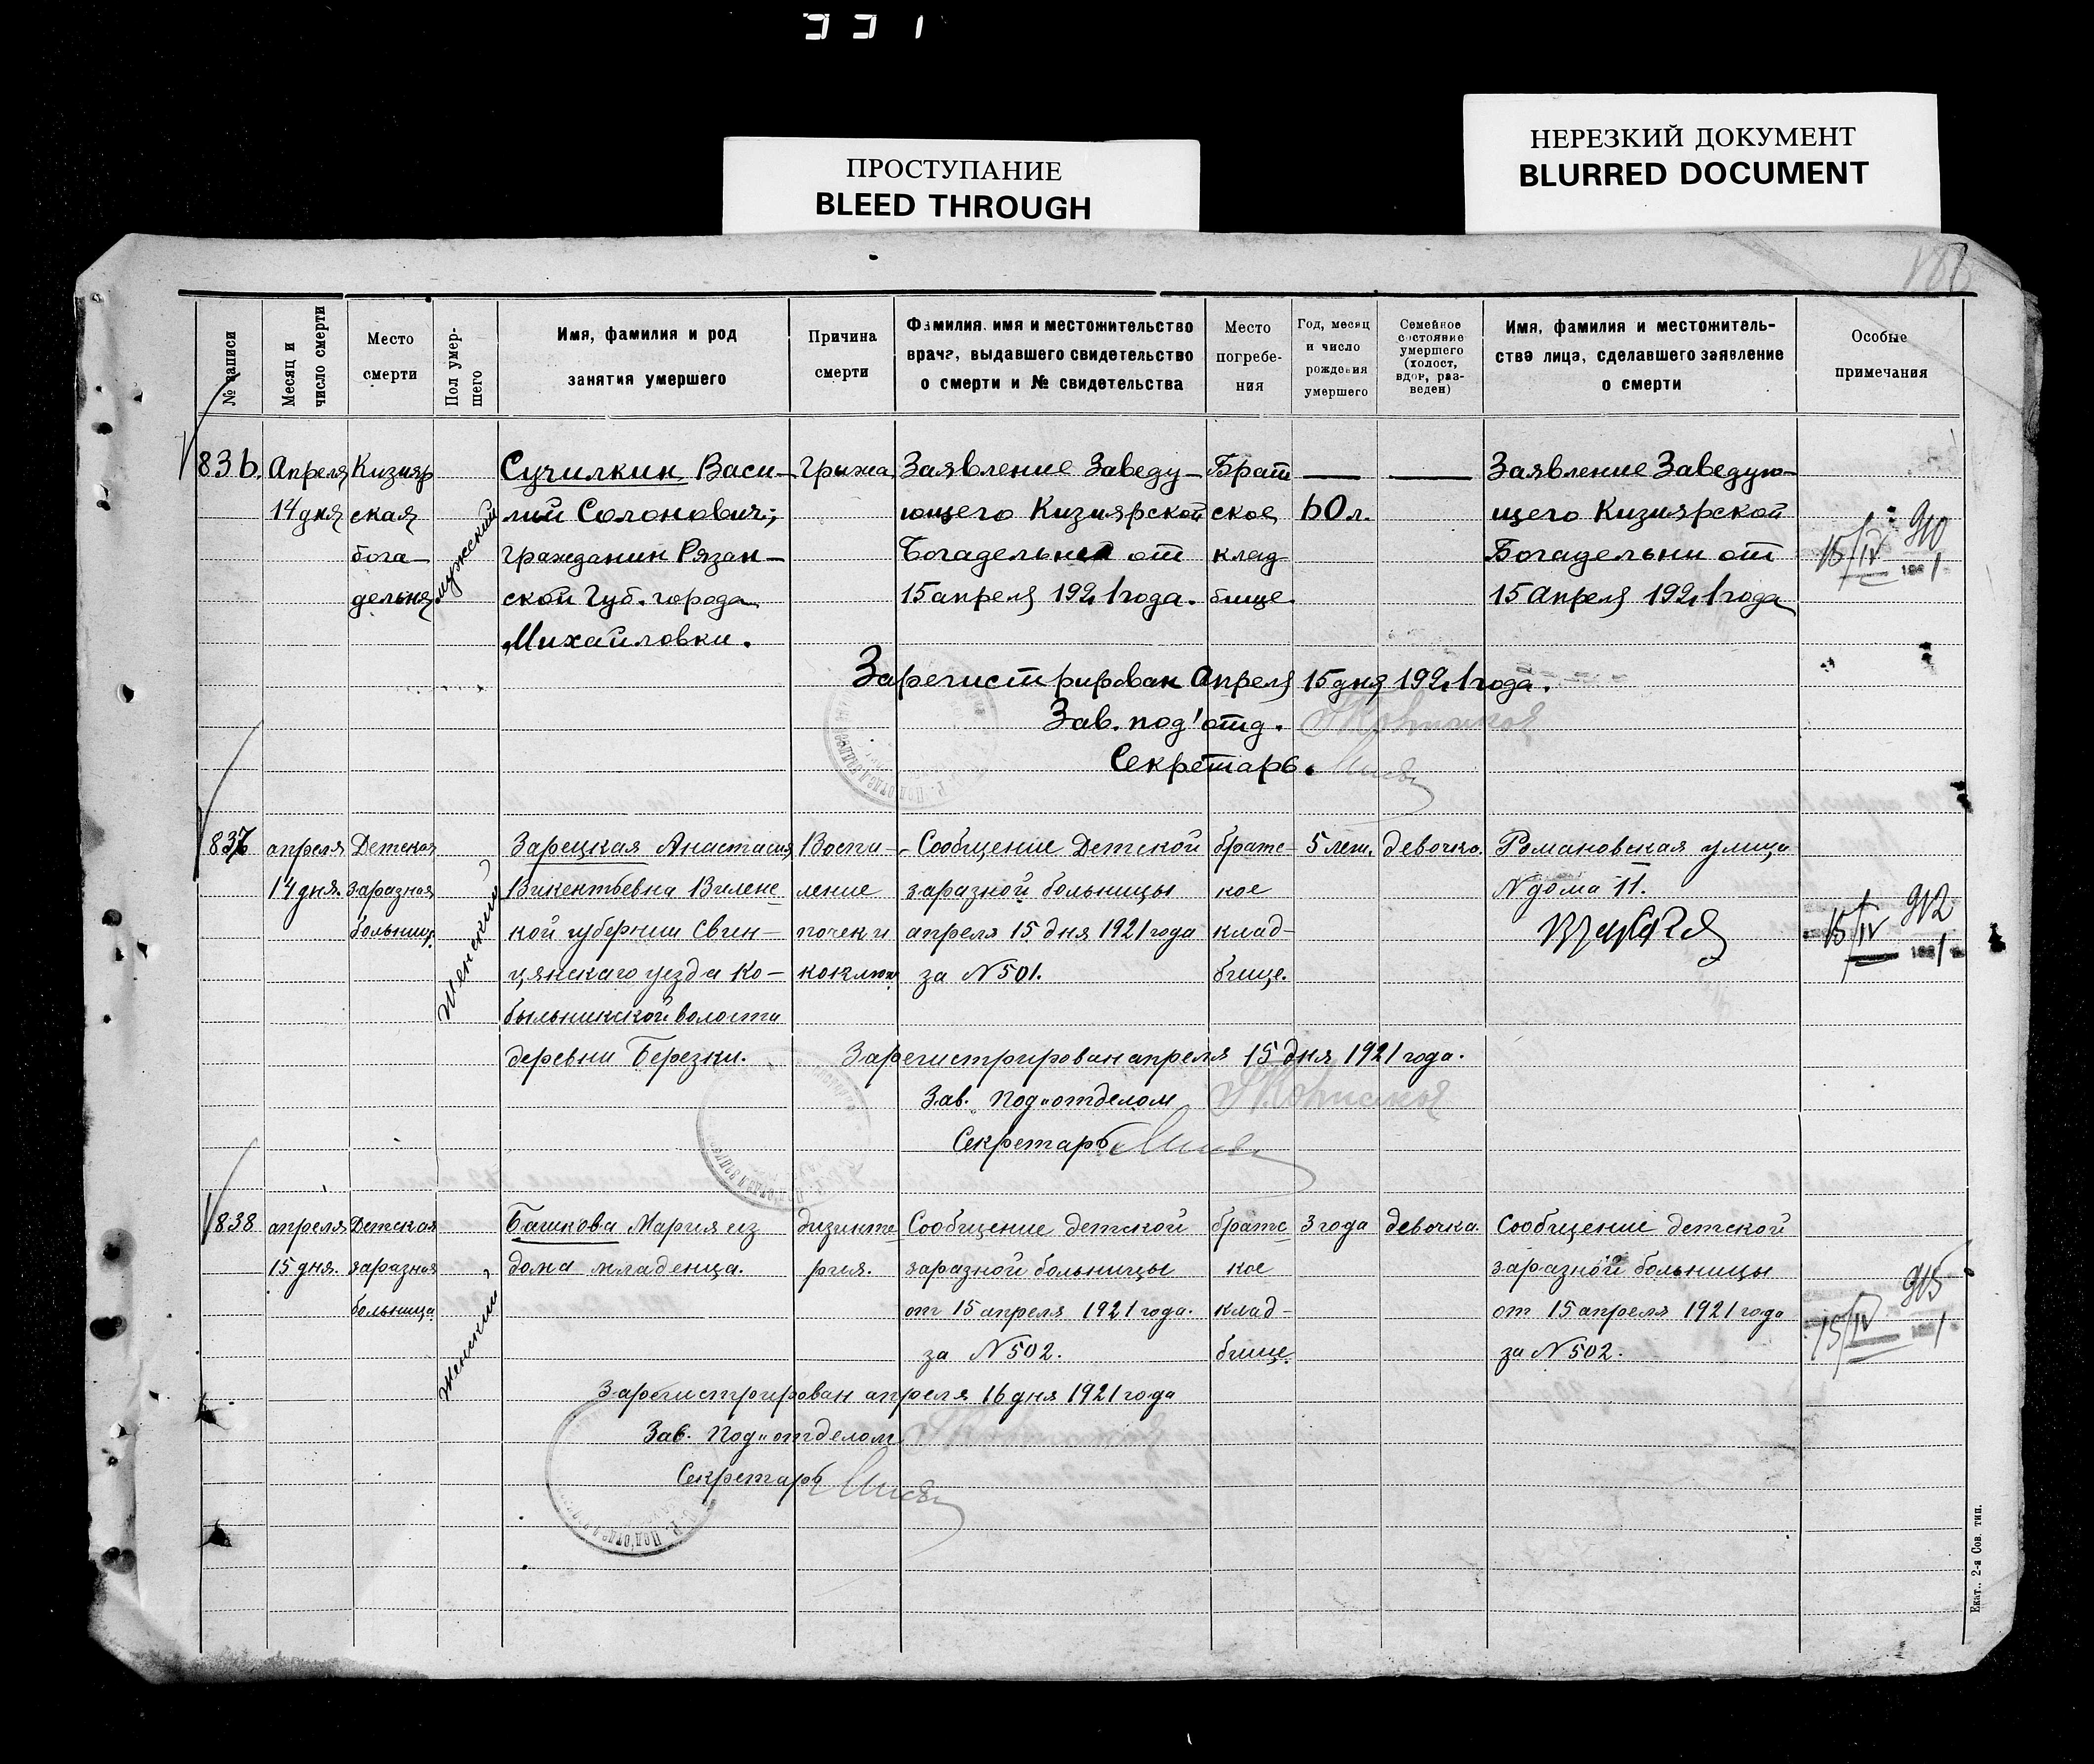 331
ПРОСТУПАНИЕ
BLEED THROUGH
НЕРЕЗКИЙ ДОКУМЕНТ
BLURRED DOCUMENT
№ записи
Месяц и
число смерти
Место
смерти
Пол умер-
шего
Имя, фамилия и род
занятия умершего
Причина
смерти
Фамилия, имя и местожительство
врача, выдавшего свидетельство
о смерти и № свидетельства
Место
погребе-
ния
Год, месяц
и число
рождения
умершего
Семейное
состояние
умершего
(холост,
вдов, раз-
веден)
Имя, фамилия и местожитель-
ство лица, сделавшего заявление
о смерти
Особые
примечания
836.
Апреля
14 дня
Кизияр
ская
бога-
дельня
мужеский
Сучилкин Васи-
лий Солонович;
гражданин Рязан-
ской Губ. города
Михайловки.
Грыжа
Заявление Заведу-
ющего Кизиярской
Богадельней от
15 апреля 1921 года.
Брат
ское
клад
бище.
60 л.
Заявление Заведую-
щего Кизиярской
Богадельни от
15 Апреля 1921 года
910
15/IV 1921
Зарегистрирован Апреля 15 дня 1921 года.
Зав. под'отд.
Секретарь.
837
апреля
14 дня.
Детская
заразная
больниц.
Женский
Зарецкая Анастасия
Викентьевна Виленс
кой губернии Свен-
цянскаго уезда Ко-
быльникской волости
деревни Березки.
Воспа-
ление
почек и
коклюш
Сообщение Детской
заразной больницы
апреля 15 дня 1921 года
за № 501.
братс-
кое
клад-
бище.
5 лет.
девочка.
Романовская улица
№ дома 11.
912
15/IV 1921
Зарегистрирован апреля 15 дня 1921 года.
Зав. Под"отделом
Секретарь
838
апреля
15 дня.
Детская
заразная
больница
Женский
Башкова Мария из
дома младенца.
дизинте
рия.
Сообщение детской
заразной больницы
от 15 апреля 1921 года.
за № 502.
братс
кое
клад-
бище.
3 года
девочка.
Сообщение детской
заразной больницы
от 15 апреля 1921 года
за № 502.
915
15/IV 1921
Зарегистрирован апреля 16 дня 1921 года
Зав. Под"отделом
Секретарь
Екат.. 2-я Сов. тип.